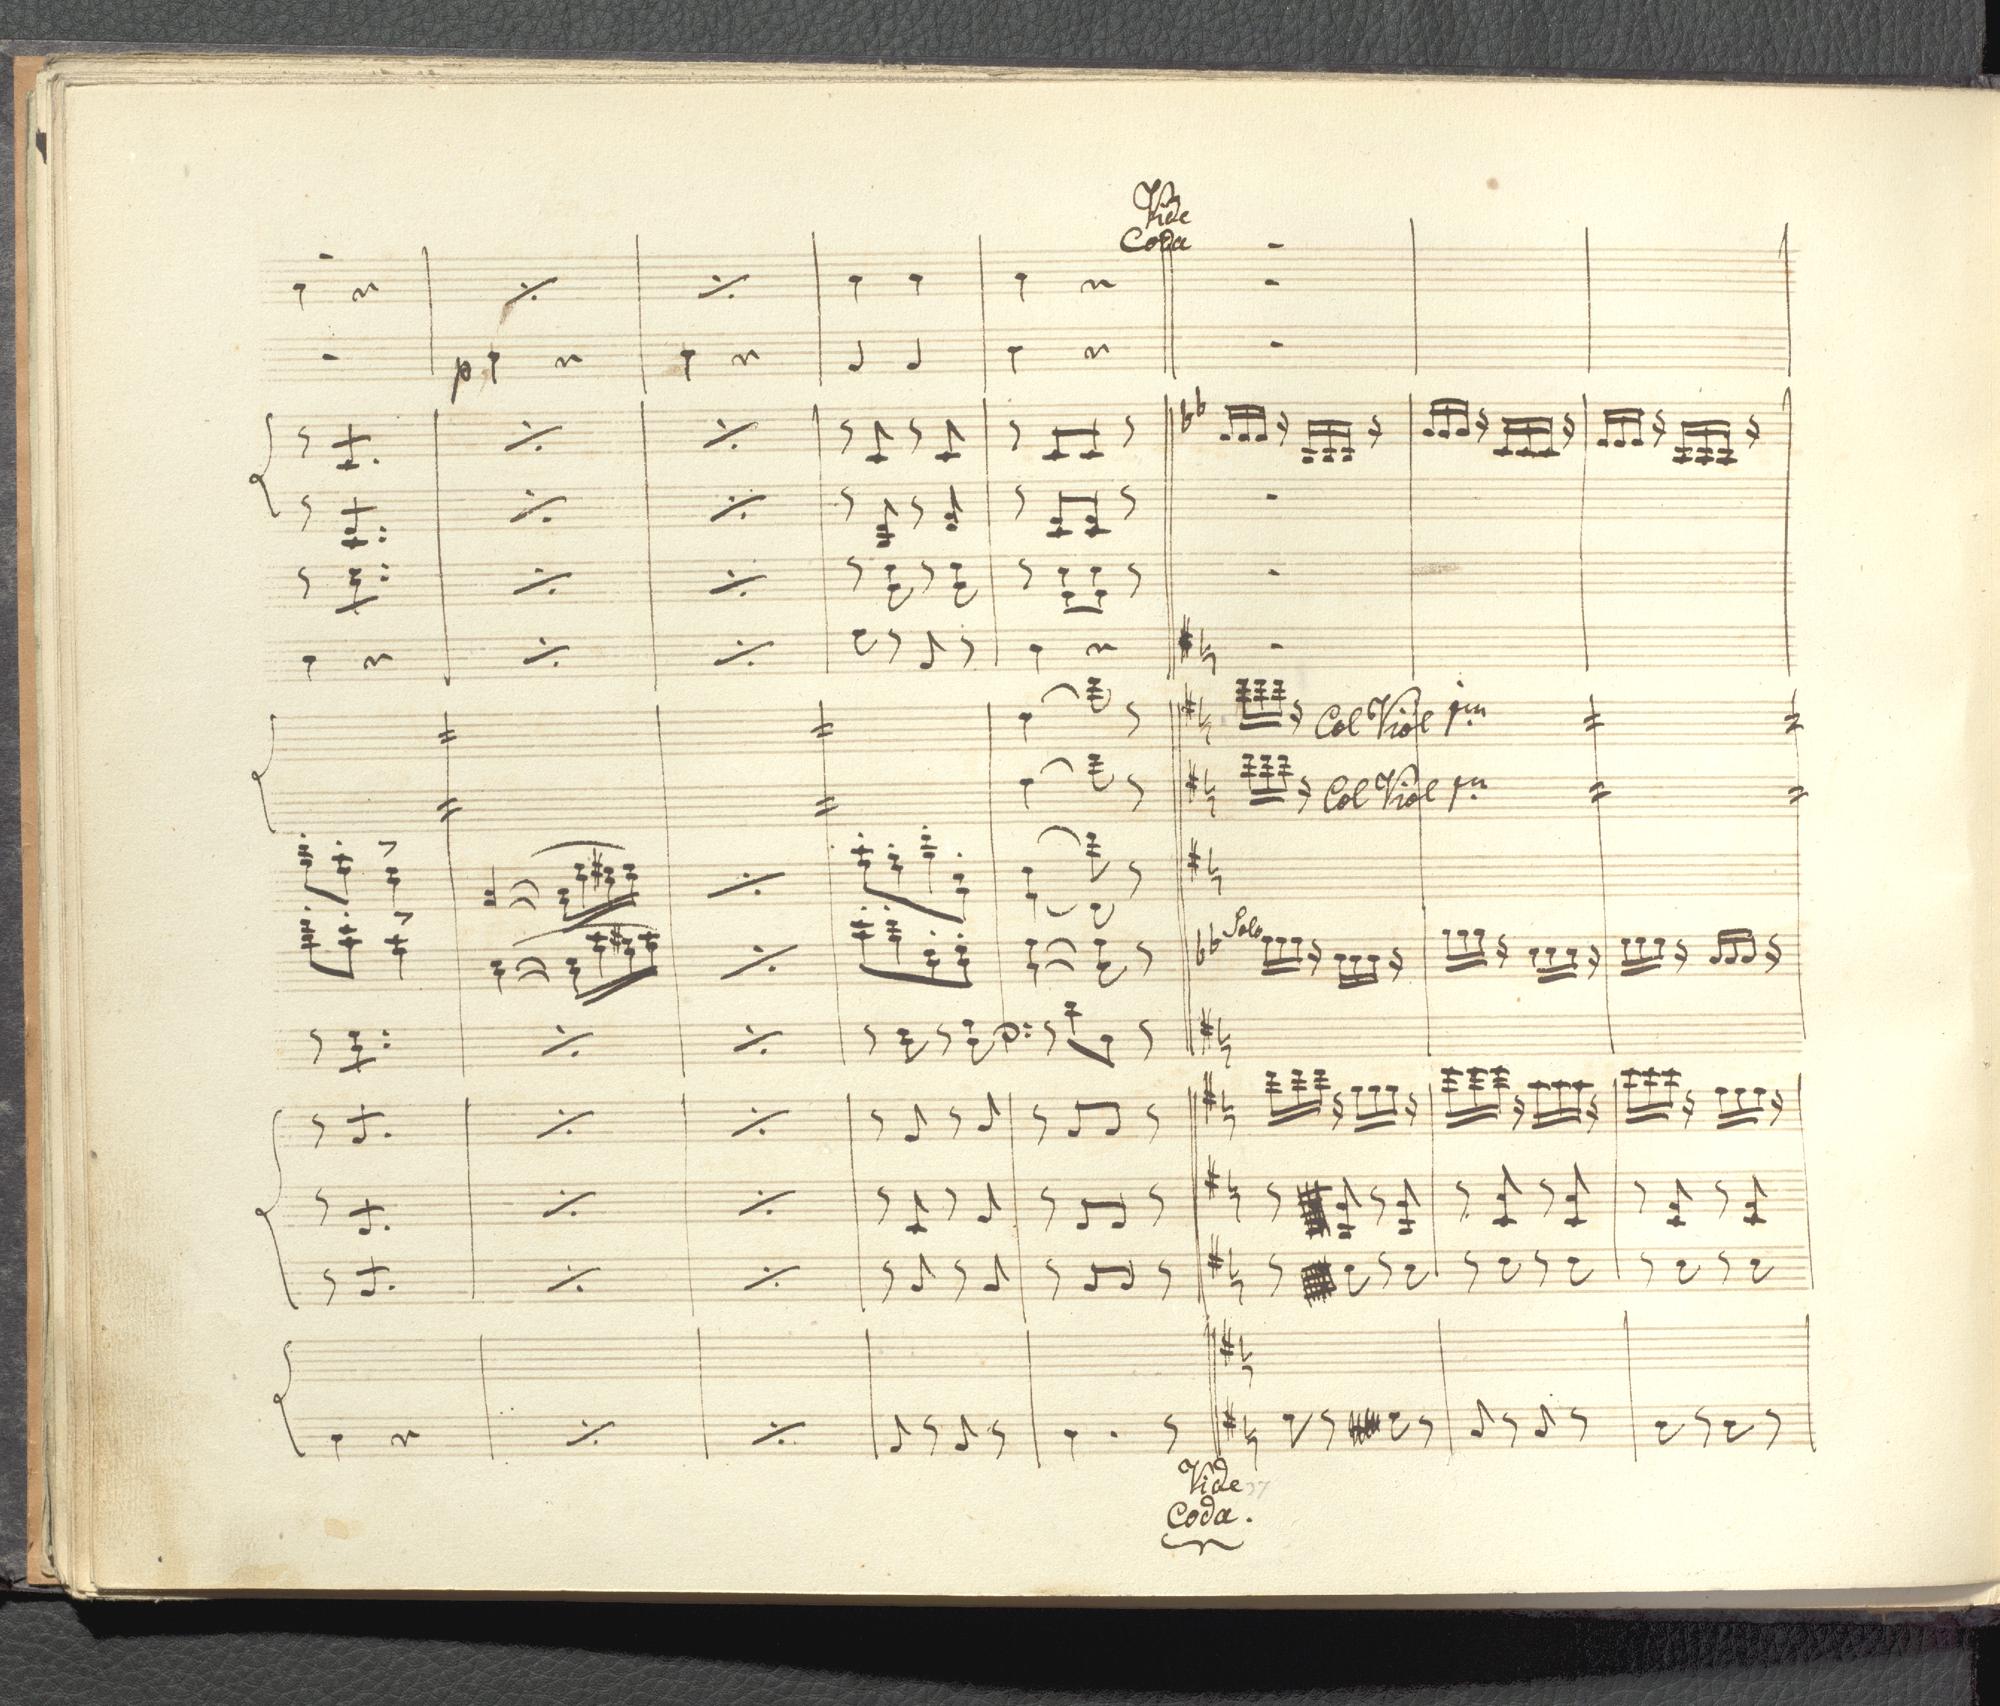 Vide
Coda
p
Col Viol 1mo
Col Viol 1mo
Solo
Vide
Coda.